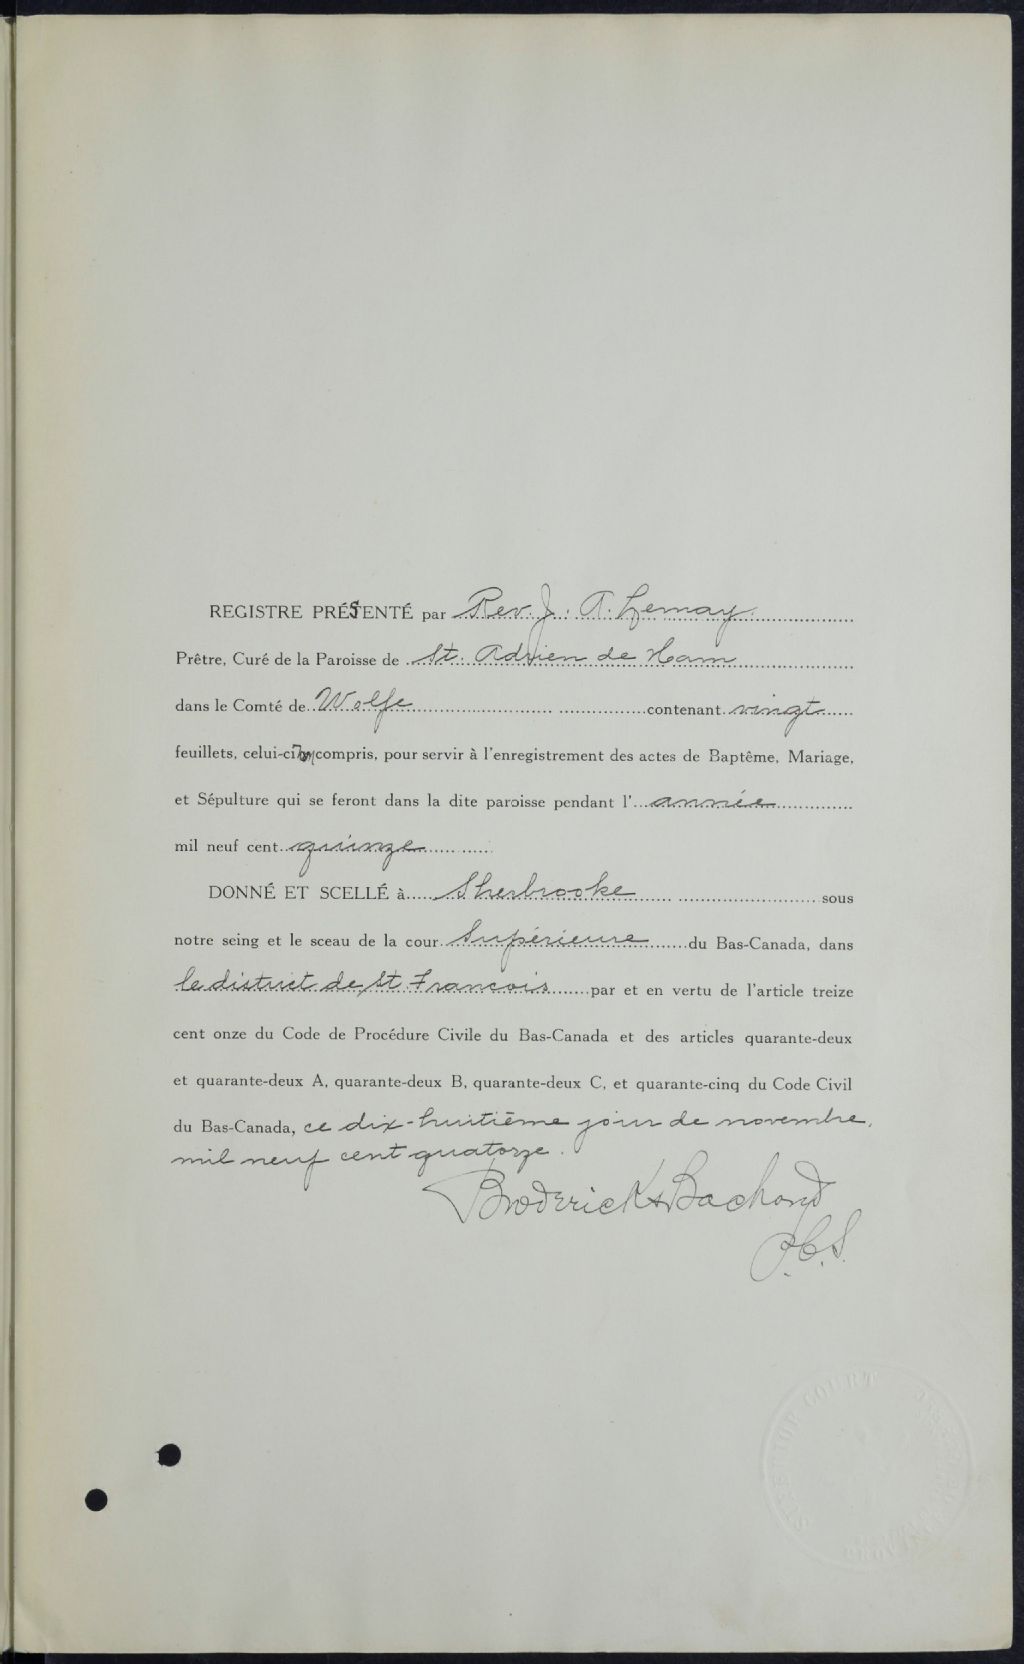 REGISTRE PRÉSENTÉ par Rev. J. A. Lemay.
Prêtre, Curé de la Paroisse de St. Adrien de Ham
dans le Comté de Wolfe contenant vingt
feuillets, celui-ci compris, pour servir à l'enregistrement des actes de Baptême, Mariage,
et Sépulture qui se feront dans la dite paroisse pendant l' année
mil neuf cent quinze
DONNÉ ET SCELLÉ à Sherbrooke sous
notre seing et le sceau de la cour Supérieure du Bas-Canada, dans
le district de St. Francois par et en vertu de l'article treize
cent onze du Code de Procédure Civile du Bas-Canada et des articles quarante-deux
et quarante-deux A, quarante-deux B, quarante-deux C, et quarante-cinq du Code Civil
du Bas-Canada, ce dix-huitième jour de novembre,
mil neuf cent quatorze.
Broderick & Bachand
P.C.S.
SUPERIOR COURT